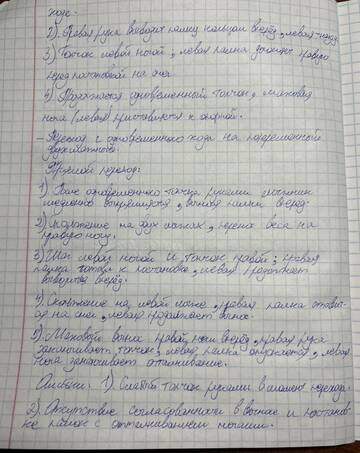 ходе.
2). Правая рука выводит палку кольцом вперёд, левая -
3) Толчок левой ногой, левая палка
перед постановкой на снег
4) Продолжается одновременный толчок, маховая
нога (левая) приставляется к опорной.
- Переход с одновременного хода на попеременный
двухшажный.
Прямой переход:
1) После одновременного толчка руками лыжник
медленно выпрямляется, вынося палки вперед.
2) Скольжение на двух лыжах, перенос веса на
правую ногу.
3) Шаг левой ногой и толчок правой; правая
палка готова к постановке, левая продолжает
выводится вперёд.
4). Скольжение на левой лыже, правая палка ставит-
ся на снег, левая продолжает вынос.
5). Маховый вынос правой ноги вперёд, правая рука
заканчивает толчок, левая палка опускается, левая
нога заканчивает отталкивание.
Ошибки: 1). Слабый толчок руками в момент перехода.
2). Отсутствие согласованности в выносе и постанов-
ке палок с отталкиванием ногами.